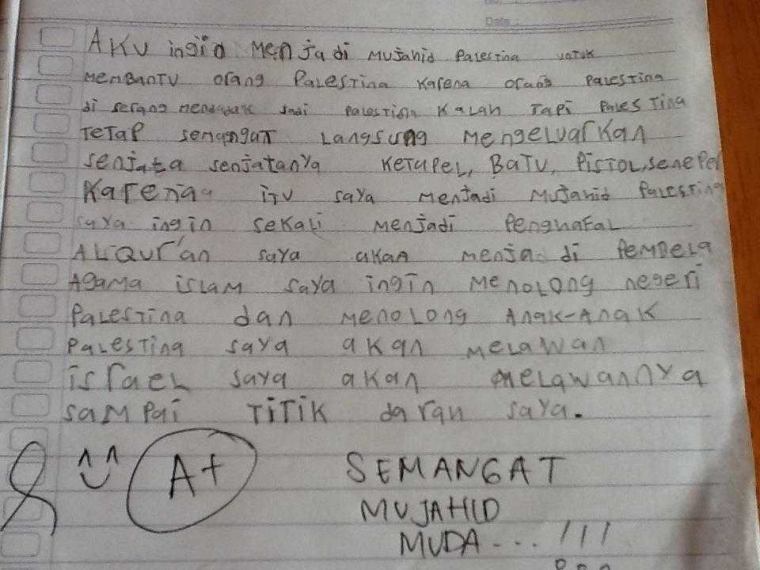 Date :
AKU ingin Menjadi Mujahid Palestina untuk
MEMBANTU orang Palestina Karena orang Palestina
di serang mendadak Jadi Palestina KaLah Tapi Palestina
TETAP semangat Langsung Mengeluarkan
senjata senjatanya KETAPEL, BATU, PISTOL, senepel
Karena itu saya menjadi Mujahid Palestina
saya ingin sekali menjadi PENGHAFAL
ALQur'an saya akan menjadi PEMBELA
AGama islam saya ingin Menolong negeri
Palestina dan menolong Anak-Anak
Palestina saya akan melawan
israel saya akan melawannya
sampai Titik darah saya.
A+
SEMANGAT
MUJAHID
MUDA...!!!